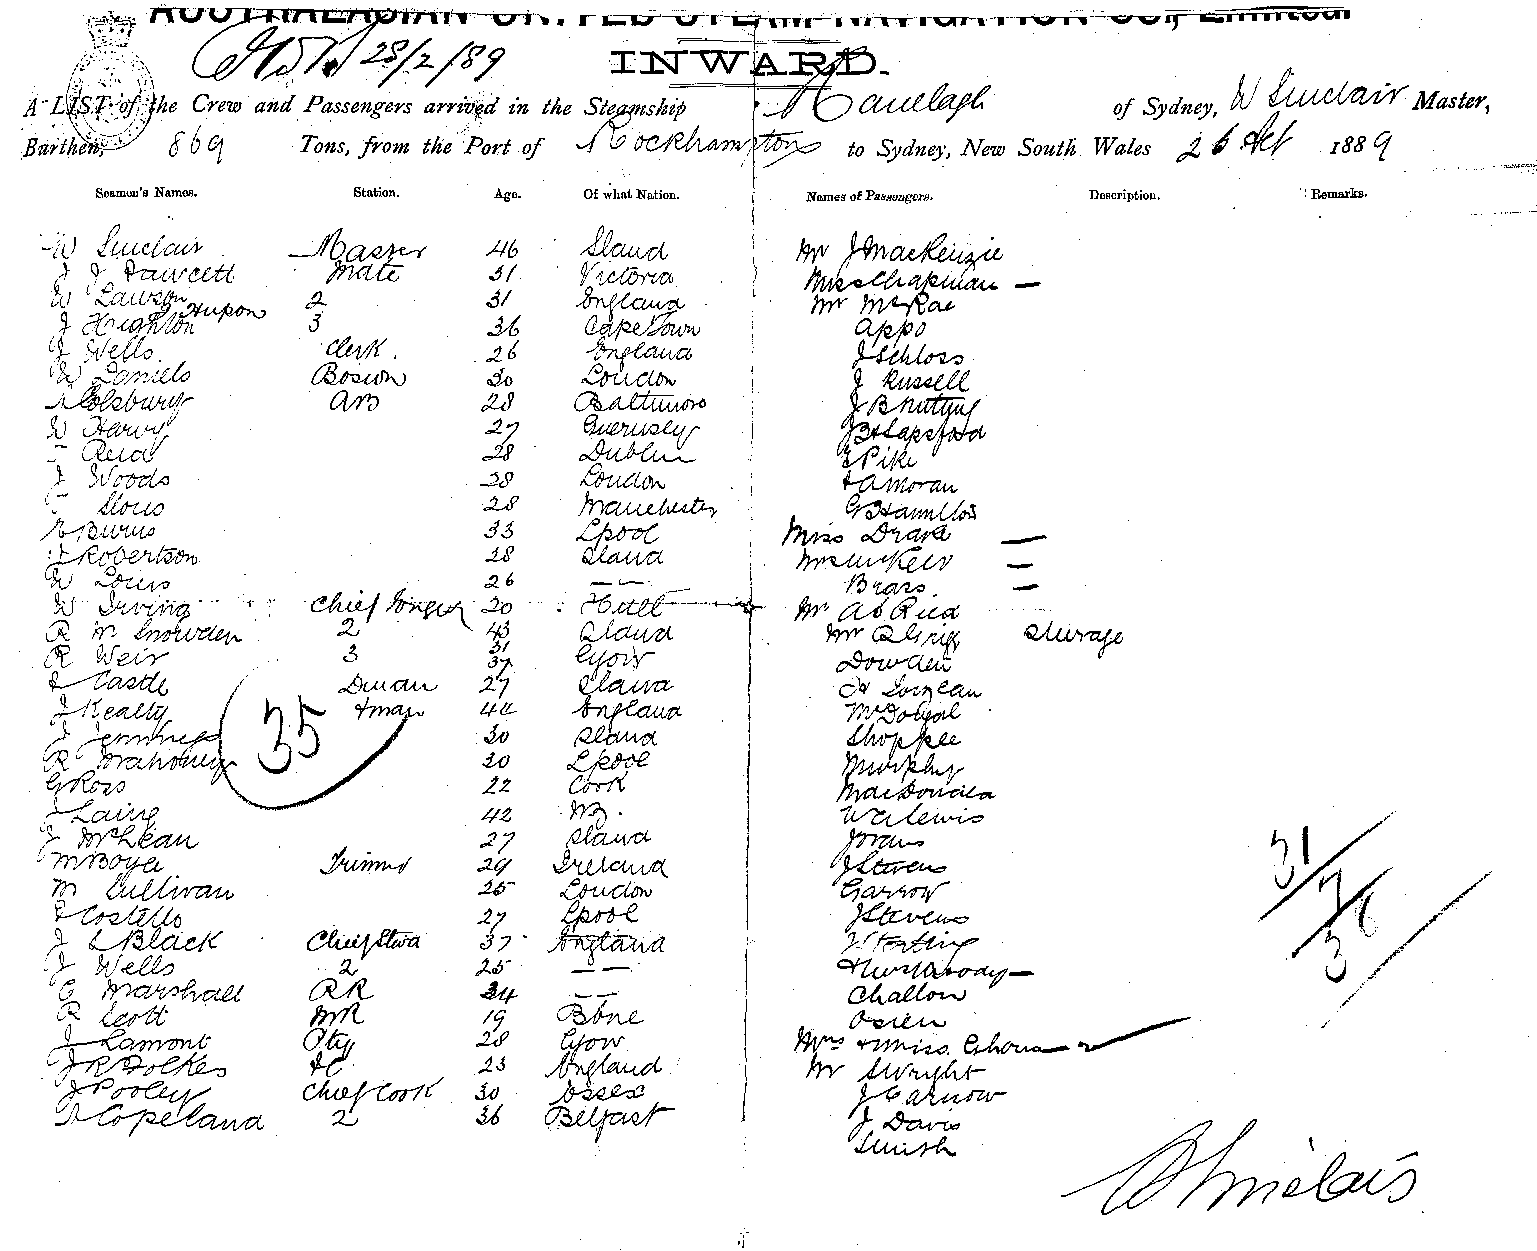 AUSTRALASIAN UNITED STEAM NAVIGATION CO., Limited.
28/2/89
INWARD.
A LIST of the Crew and Passengers arrived in the Steamship Ranelagh of Sydney, W Sinclair Master,
Burthen, 869 Tons, from the Port of Rockhampton to Sydney, New South Wales 26 1889
Seamen's Names. Station. Age. Of what Nation. Names of Passengers. Description. Remarks.
W Sinclair Master 46 Sland Mr J MacKenzie
J J Fawcett Mate 31 Victoria Miss Chapman —
W Lawson 2 31 England Mr McRae
J Highton 3 36 Cape Town Appo
J Wells Clerk. 26 England J Schloss
W Daniels Bosun 30 London J Russell
Colsbury AB 28 Baltimore J B Nutting
W Harvy 27 Guernsey
Reid 28 Dublin Pike
J Woods 28 London Moran
28 Manchester G Hamilton
Burns 33 Lpool Miss Drake —
J Robertson 28 Sland —
W Louis 26 — — Brass. —
W Irving Chief 20 Hull Mr Reid
R Mc Snowden 2 43 Sland Mr Sturage
R Weir 3 31 37 Gow Dowden
Castle 27 Sland
J Kealty 44 England McDougal
J Jennings 30 Sland Shoppee
R Mahoney 30 Lpool Murphy
G Ross 22 Cook MacDonald
J Laing 42 NZ. W Lewis
J McLean 27 Sland
M Boyd Trimmr 29 Ireland J Stevens
M Sullivan 25 London Garrow
Costello 27 Lpool J Stevens
J S Black Chief Stwd 37 England
J Wells 2 25 — —
C Marshall RR 34 — — Challon
R Scott MR 19 Bone Osien
J Lamont Pty 28 Gow Mrs & Miss
J R Folkes 23 England Mr S Wright
J Pooley Chief Cook 30 Essex J Carnow
Copeland 2 36 Belfast J Davis
Smith
35
31
7
38
W Sinclair